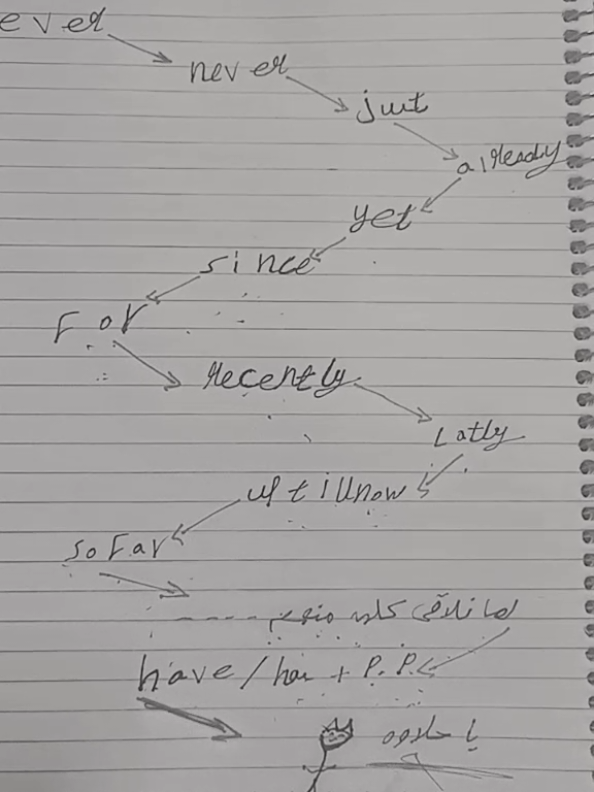 ever
never
just
already
yet
since
For
recently
Latly
up till now
so Far
لما نلاقي كلمه منهم ----
have/has + P.P.
يا حلاوه